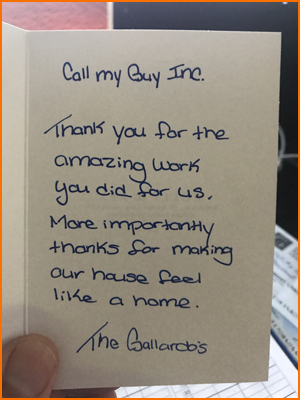 Call my Guy Inc.
Thank you for the
amazing work
you did for us.
More importantly
thanks for making
our house feel
like a home.
The Gallardo's